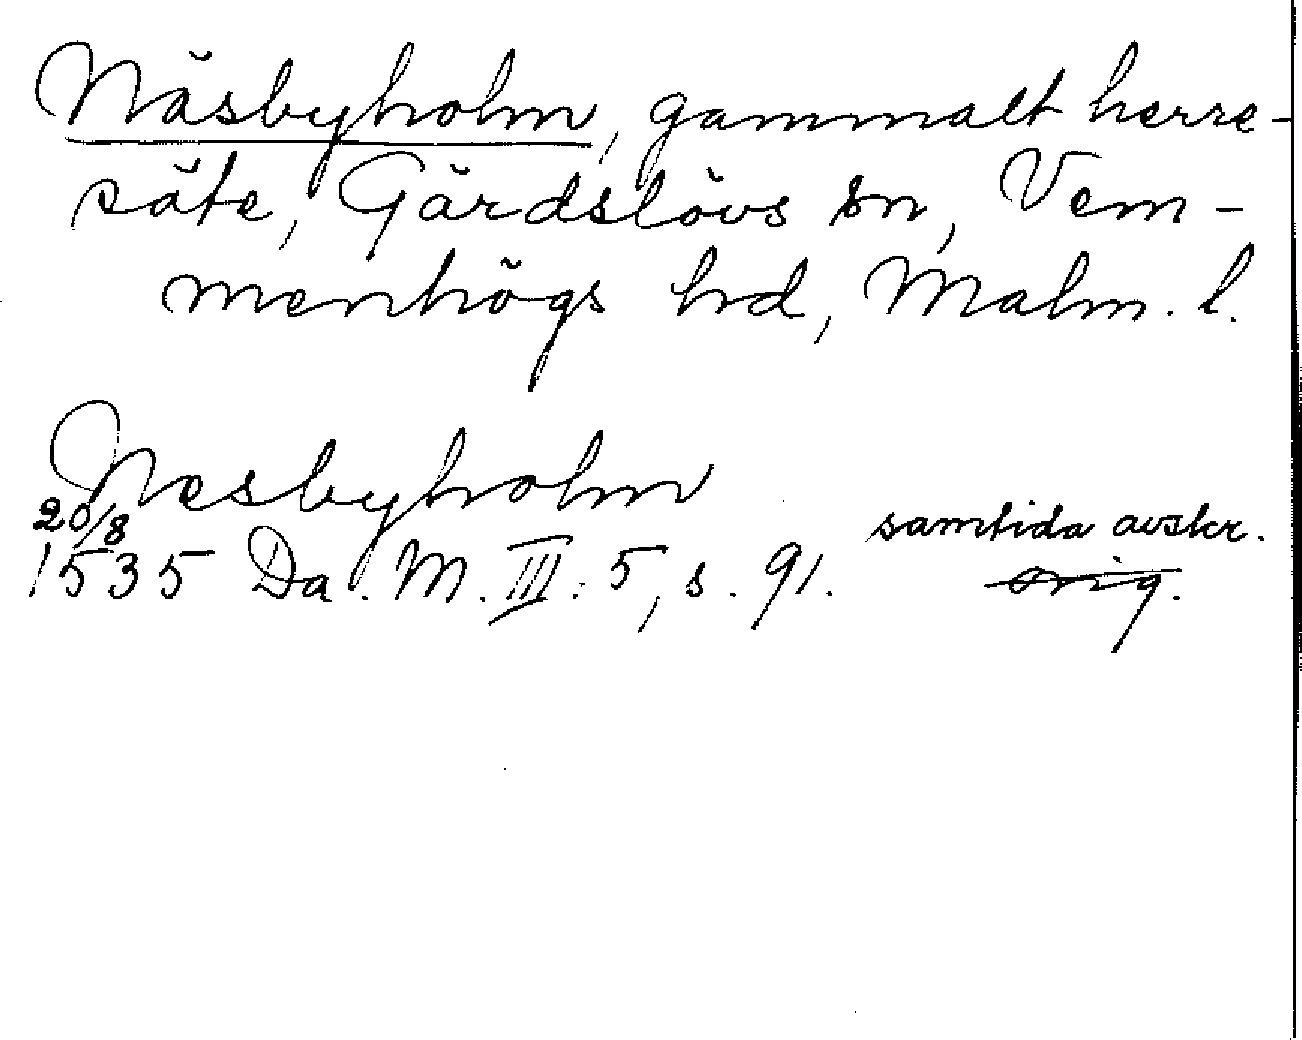 Näsbyholm, gammalt herre-
säte, Gärdslövs sn, Vem-
menhögs hd, Malm. l.
Nesbyholm
20/8 samtida avskr.
1535 Da. M. III: 5, s. 91. orig.